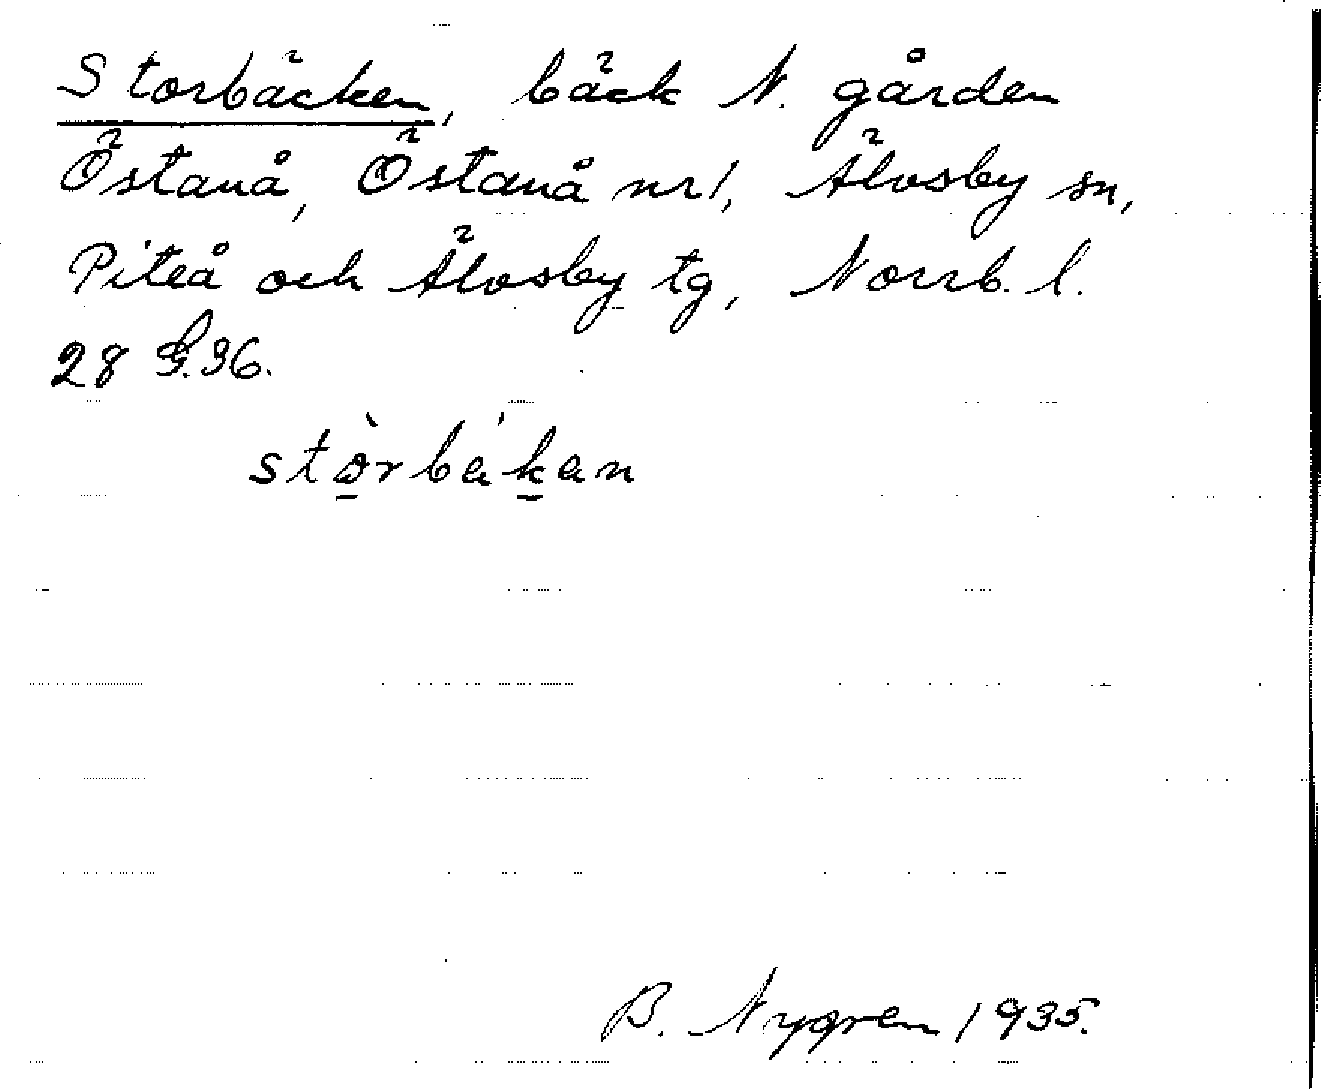 Storbäcken, bäck N. gården
Östanå, Östanå nr 1, Älvsby sn,
Piteå och Älvsby tg, Norrb. l.
28 G.36.
stòrbákan
B. Nygren 1935.